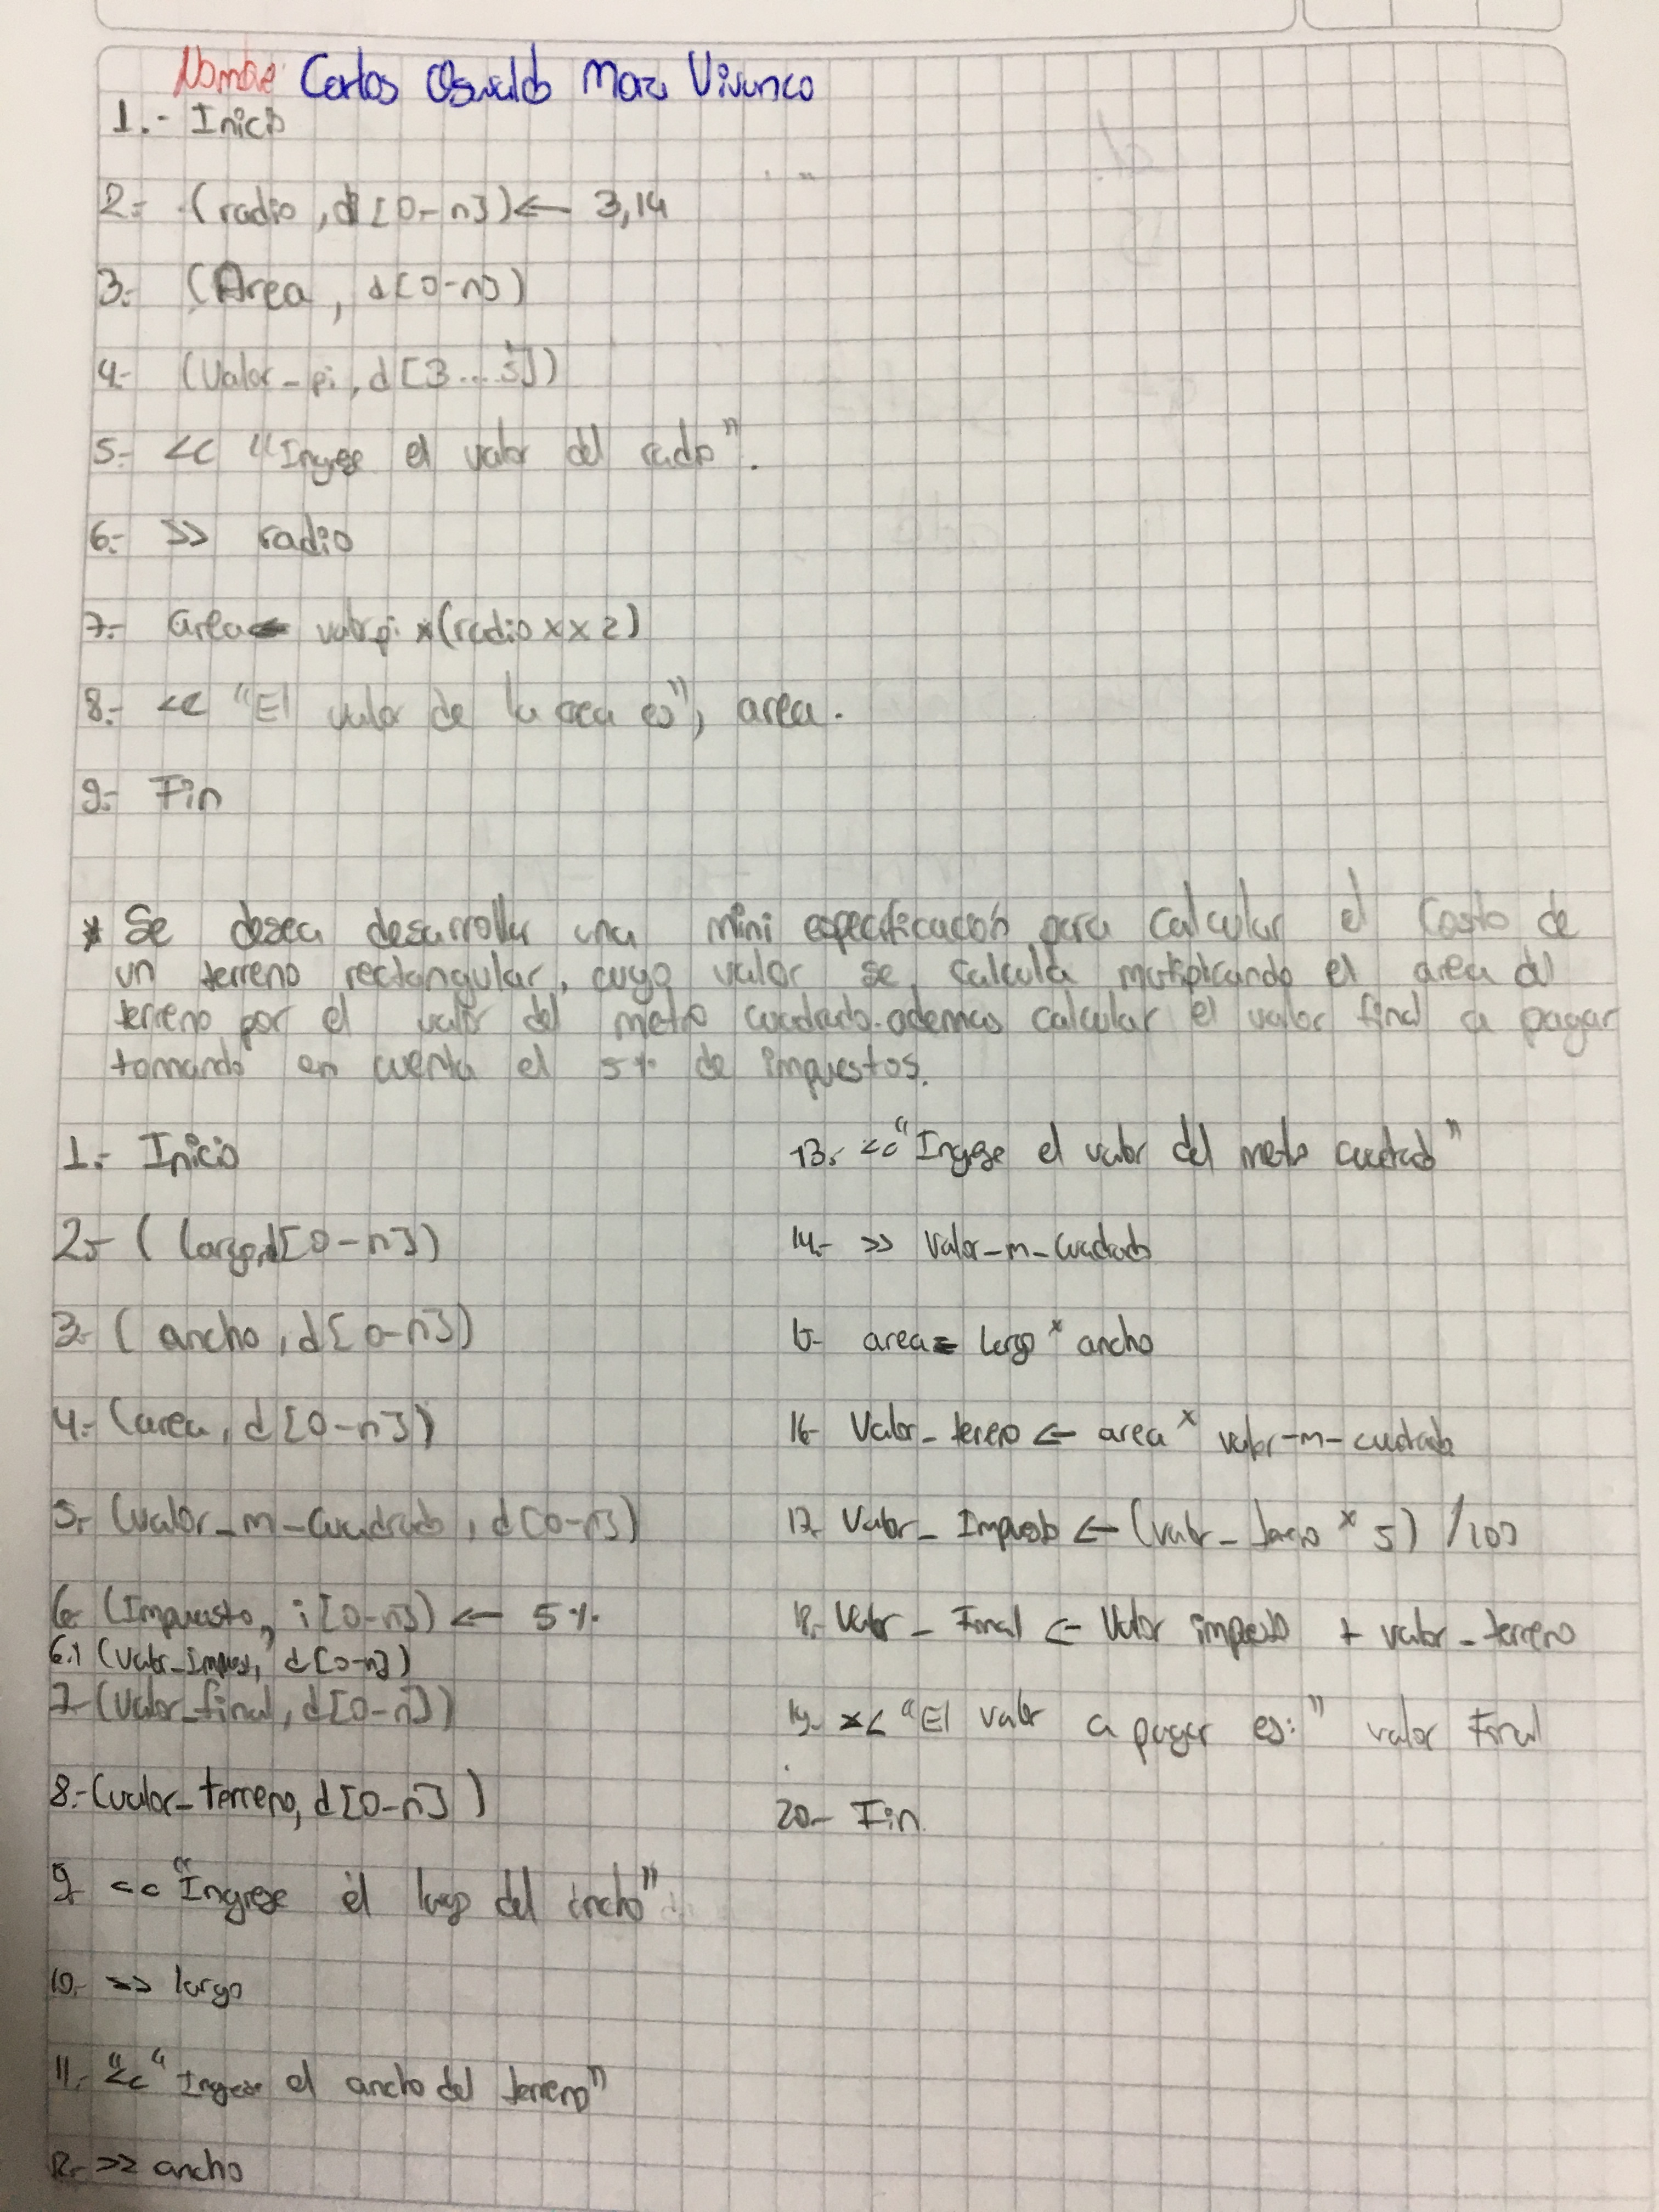 Nombre: Carlos Oswaldo Maza Vivanco
1.- Inicio
2.- (radio, d[0-n]) ← 3,14
3.- (Area, d[0-n])
4.- (Valor_pi, d[3...])
5.- << "Ingrese el valor del radio".
6.- >> radio
7.- area ← valor pi * (radio x x 2)
8.- << "El valor de la area es", area.
9.- Fin
* Se desea desarrollar una mini especificación para calcular el costo de
un terreno rectangular, cuyo valor se calcula multiplicando el area del
terreno por el valor del metro cuadrado. ademas calcular el valor final a pagar
tomando en cuenta el 5% de impuestos.
1.- Inicio
2.- (largo, d[0-n])
3.- (ancho, d[0-n])
4.- (area, d[0-n])
5.- (valor_m_cuadrado, d[0-n])
6.- (Impuesto, i[0-n]) ← 5%
6.1 (valor_impues, d[0-n])
7.- (valor_final, d[0-n])
8.- (valor_terreno, d[0-n])
9.- << "Ingrese el largo del ancho"
10.- >> largo
11.- << "Ingrese el ancho del terreno"
12.- >> ancho
13.- << "Ingrese el valor del metro cuadrado"
14.- >> valor_m_cuadrado
15.- area = largo * ancho
16.- Valor_terreno ← area * valor-m-cuadrado
17.- Valor_Impuesto ← (valor_terreno * 5) /100
18.- Valor_Final ← Valor impuesto + valor_terreno
19.- << "El valor a pagar es:" valor Final
20.- Fin.